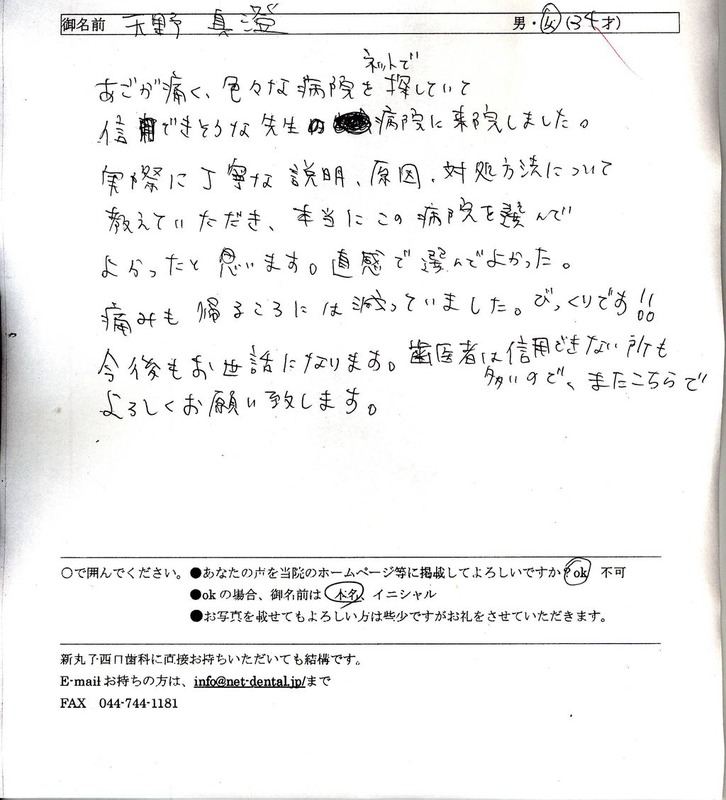 御名前 天野 真澄 男・女(34才)
ネットで
あごが痛く、色々な病院を探していて
信用できそうな先生の病院に来院しました。
実際に丁寧な説明、原因、対処方法について
教えていただき、本当にこの病院を選んで
よかったと思います。直感で選んでよかった。
痛みも帰るころには減っていました。びっくりです!!
今後もお世話になります。歯医者は信用できない所も
多いので、またこちらで
よろしくお願い致します。
○で囲んでください。●あなたの声を当院のホームページ等に掲載してよろしいですか?ok 不可
●okの場合、御名前は 本名、イニシャル
●お写真を載せてもよろしい方は些少ですがお礼をさせていただきます。
新丸子西口歯科に直接お持ちいただいても結構です。
E-mailお持ちの方は、info@net-dental.jp/まで
FAX 044-744-1181